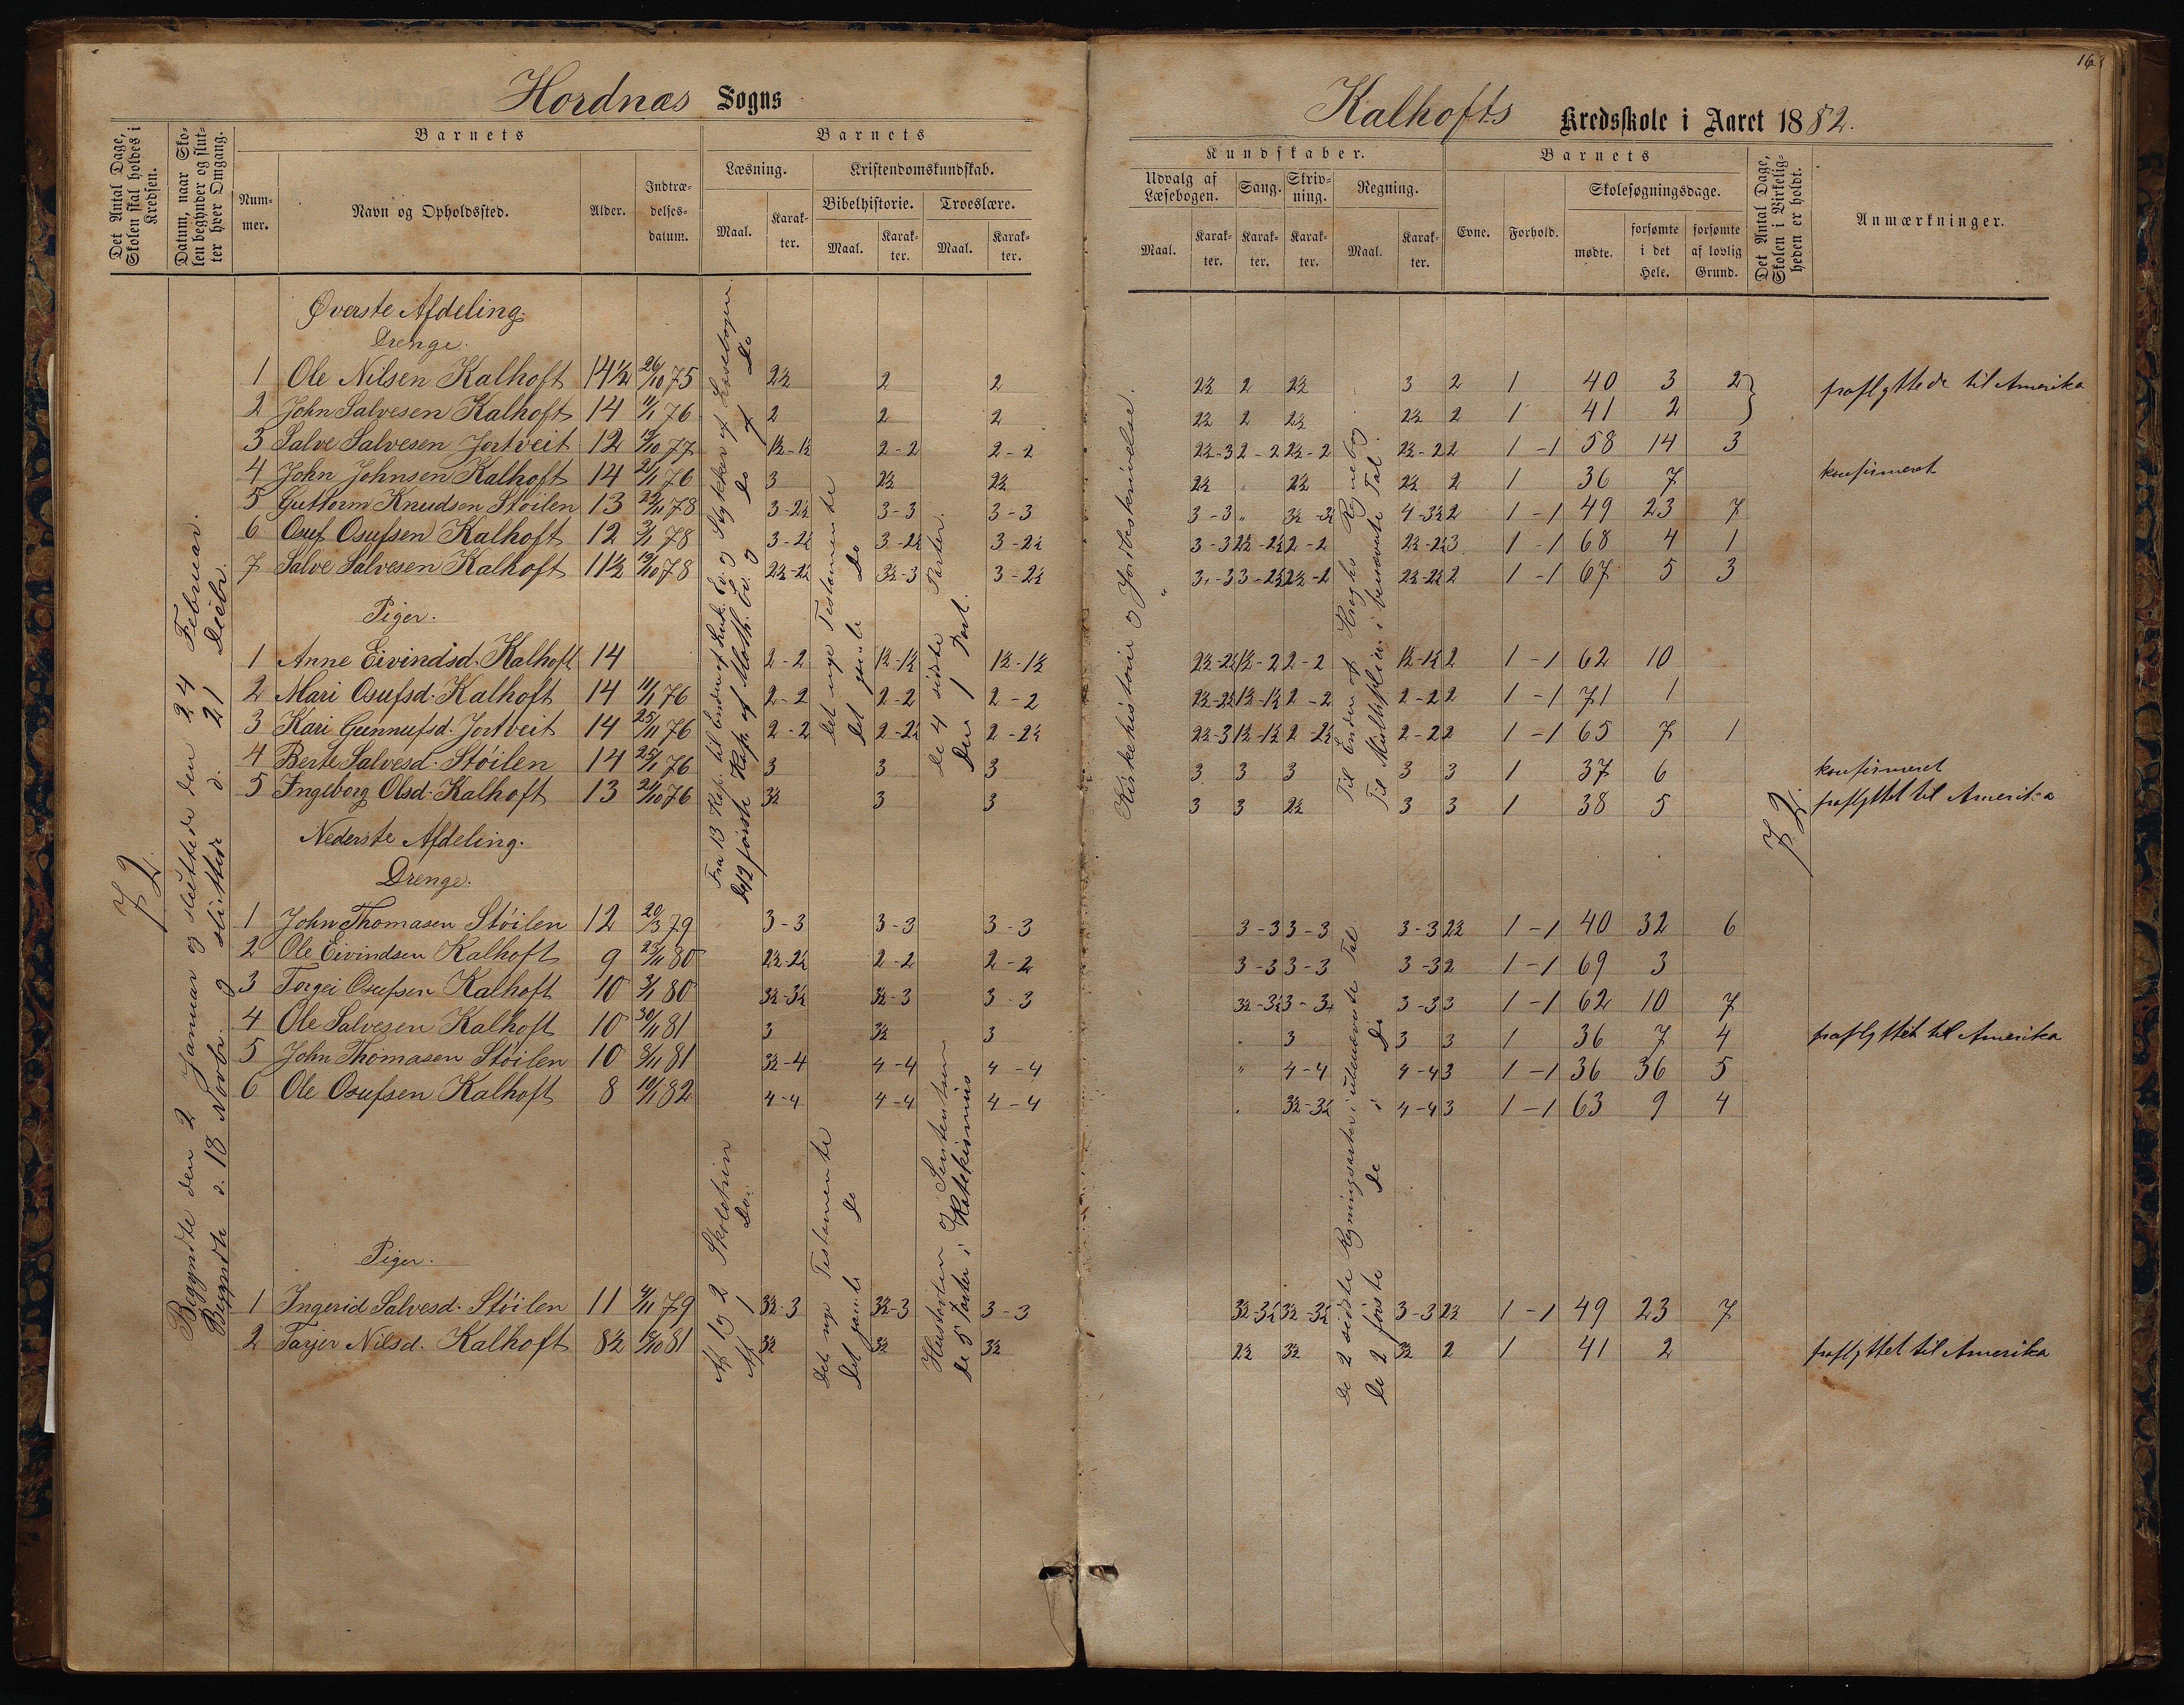 Hordnæs Sogns
Det Antal Dage, Skolen skal holdes i Kredsen.
Datum, naar Skolen begynder og slutter hver Omgang.
Barnets
Nummer.
Navn og Opholdssted.
Alder.
Indtrædelsesdatum.
Barnets
Læsning.
Kristendomskundskab.
Maal.
Karakter.
Bibelhistorie.
Troeslære.
Maal.
Karakter.
Maal.
Karakter.
72.
Begyndte den 2 Januar og sluttede den 24 Februar.
Begyndte d. 18 Novbr. og slutter d. 21 Decbr.
Øverste Afdeling.
Drenge.
1 Ole Nilsen Kalhoft 14½ 26/10 75 2½ 2 2
2 John Salvesen Kalhoft 14 11/1 76 2 2 2
3 Salve Salvesen Jortveit 12 77 1½-1½ 2-2 2-2
4 John Johnsen Kalhoft 14 21/1 76 3 2½ 2½
5 Guttorm Knudsen Støilen 13 78 3-2½ 3-3 3-3
6 Osuf Osufsen Kalhoft 12 3/1 78 3-2½ 3-2½ 3-2½
7 Salve Salvesen Kalhoft 11½ 78 2½-2½ 3½-3 3-2½
Piger.
1 Anne Eivindsd. Kalhoft 14 2-2 1½-1½ 1½-1½
2 Mari Osufsd. Kalhoft 14 11/1 76 2-2 2-2 2-2
3 Kari Gunnufsd. Jortveit 14 25/11 76 2-2 2-2½ 2-2½
4 Berte Salvesd. Støilen 14 25/1 76 3 3 3
5 Ingeborg Olsd. Kalhoft 13 21/10 76 3½ 3 3
Fra 13 Kap. til Enden af Luk. Ev. og Stykker af Læsebogen.
De 12 første Kap. af Math. Ev. og do af do
Det nye Testamente
Det gamle do
De 4 sidste Parter.
Den 1 Part.
Nederste Afdeling.
Drenge.
1 John Thomasen Støilen 12 20/3 79 3-3 3-3 3-3
2 Ole Eivindsen Kalhoft 9 80 2½-2½ 2-2 2-2
3 Torgei Osufsen Kalhoft 10 3/1 80 3½-3½ 3½-3 3-3
4 Ole Salvesen Kalhoft 10 30/11 81 3 3½ 3
5 John Thomasen Støilen 10 8/11 81 3½-4 4-4 4-4
6 Ole Osufsen Kalhoft 8 10/1 82 4-4 4-4 4-4
Piger.
1 Ingerid Salvesd. Støilen 11 79 3½-3 3½-3 3-3
2 Tarjer Nilsd. Kalhoft 8½ 81 3½ 3½ 3½
Af 1 og 2 Skoletrin
Af 1 Do.
Det nye Testamente
Det gamle do
Historien og Sententsen
de 5 Parter i Katekismus
16
Kalhofts Kredsskole i Aaret 1882.
Kundskaber.
Udvalg af Læsebogen.
Sang.
Skrivning.
Regning.
Maal.
Karakter.
Karakter.
Karakter.
Maal.
Karakter.
Barnets
Evne.
Forhold.
Skolesøgningsdage.
mødte.
forsømte i det Hele.
forsømte af lovlig Grund.
Det Antal Dage, Skolen i Virkeligheden er holdt.
Anmærkninger.
Kirkehistorie og Jordbeskrivelse.
"
Til Enden af Kroghs Regnebog
Til Multiplion i benævnte Tal.
2½ 2 2½ 3 2 1 40 3 2 fraflyttede til Amerika
2½ 2 2½ 2½ 2 1 41 2
2½-3 2-2 2½-2 2½-2 2 1-1 58 14 3
2½ " 2½ 2½ 2 1 36 7 konfirmeret
3-3 " 3½-3½ 4-3½ 2 1-1 49 23 7
3-3 2½-2½ 2-2 2½-2½ 3 1-1 68 4 1
3-3 3-2½ 2½-2 2½-2½ 2 1-1 67 5 3
2½-2½ 1½-2 2-2 1½-1½ 2 1-1 62 10
2½-2½ 1½-1½ 2-2 2-2 2 1-1 71 1
2½-3 1½-1½ 2-2½ 2-2 2 1-1 65 7 1
3 3 3 3 3 1 37 6 konfirmeret
3 3 2½ 3 3 1 38 5 fraflyttet til Amerika
72.
3-3 3-3 3-3 2½ 1-1 40 32 6
3-3 3-3 3-3 2 1-1 69 3
3½-3½ 3-3½ 3-3 3 1-1 62 10 7
" 3 3 3 1 36 7 4 fraflyttet til Amerika
" 4-4 4-4 3 1-1 36 36 5
" 3½-3½ 4-4 3 1-1 63 9 4
3½-3½ 3½-3½ 3-3 2½ 1-1 49 23 7
2½ 3½ 3½ 2 1 41 2 fraflyttet til Amerika
De 2 sidste Regningsarter i ubenævnte Tal
De 2 første do i do